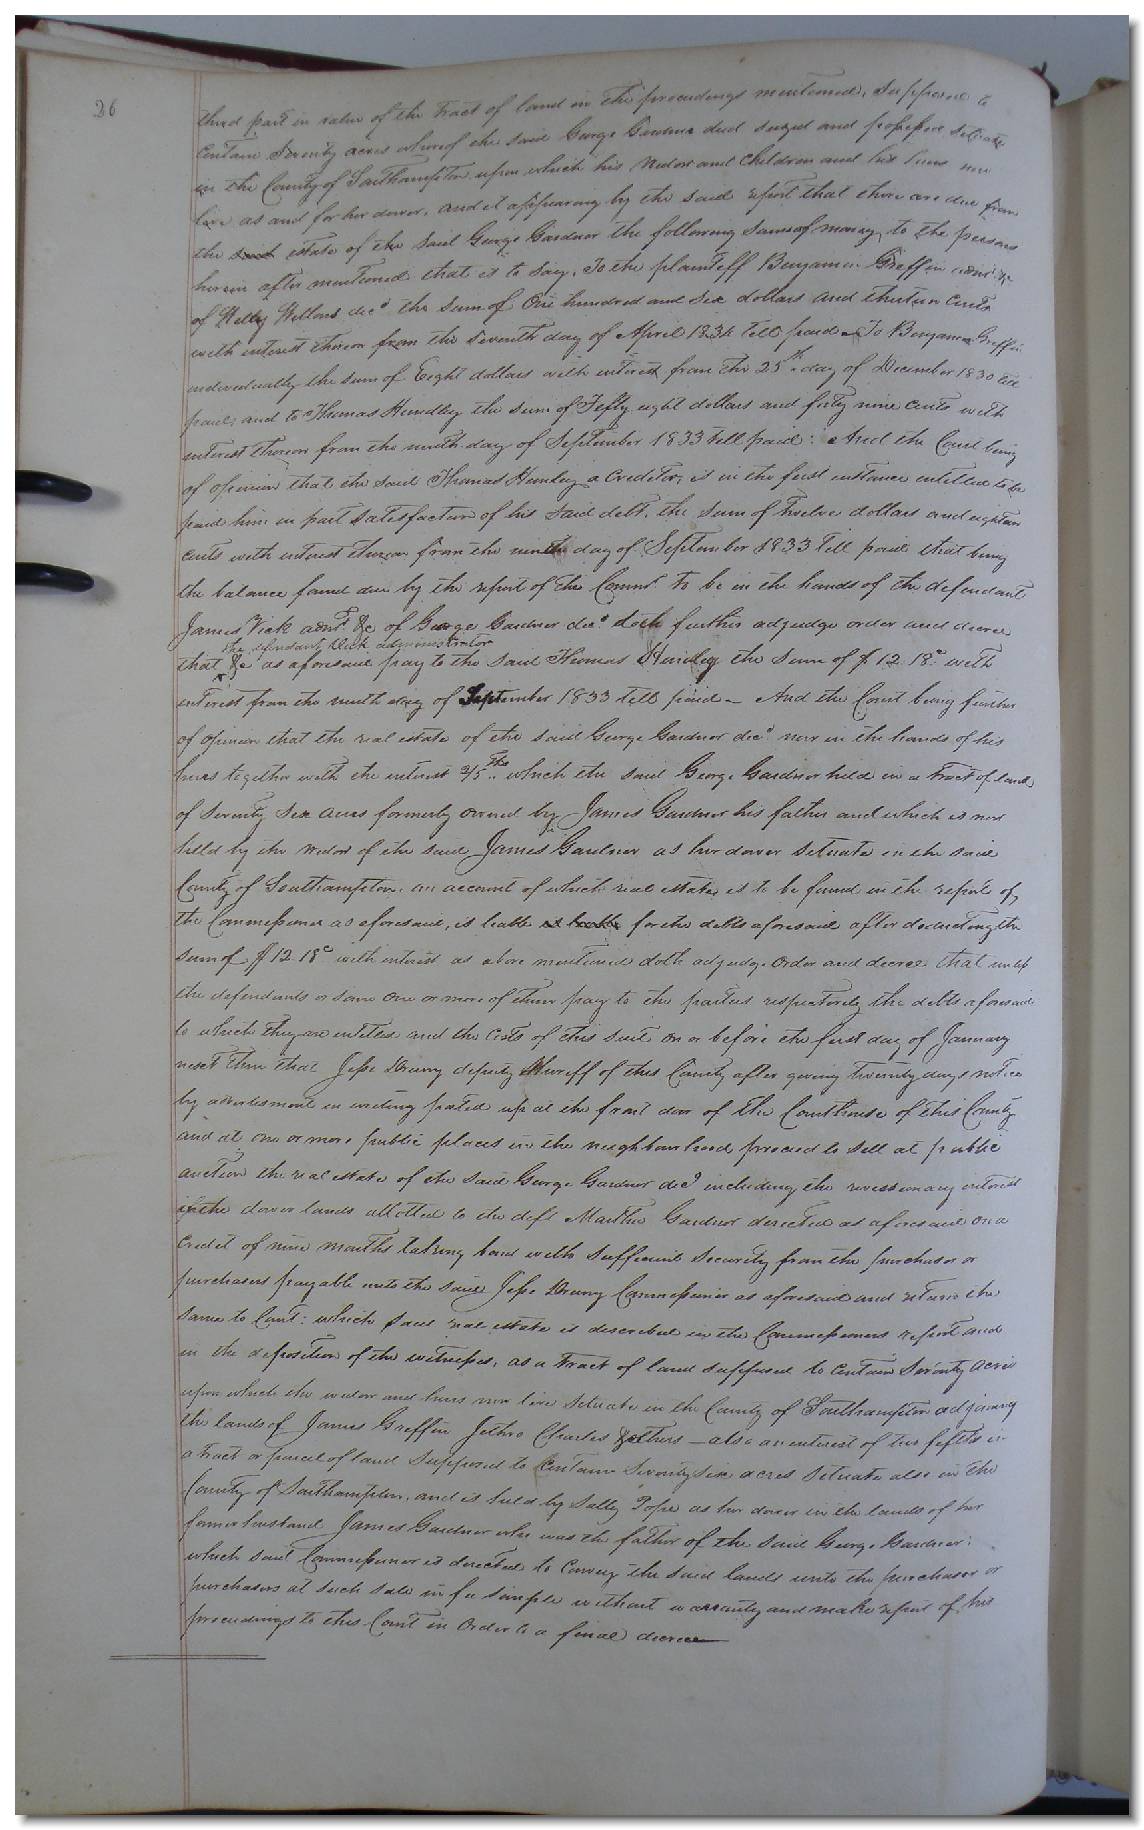 26
third part in value of the tract of land in the proceedings mentioned, Supposed to
contain Seventy acres whereof the said George Gardner died seized and possessed situate
in the County of Southampton upon which his widow and Children and his heirs now
live as and for her dower. and it appearing by the said report that there are due from
the said estate of the said George Gardner the following sums of money, to the persons
herein after mentioned that is to say, To the plaintiff Benjamin Griffin admr &c
of Willons decd the sum of One hundred and six dollars and thirteen Cents
with interest thereon from the Seventh day of April 1834 till paid - To Benjamin Griffin
individually the sum of Eight dollars with interest from the 25th day of December 1830 till
paid, and to Thomas Hundley the sum of Fifty eight dollars and forty nine Cents with
interest thereon from the ninth day of September 1833 till paid: And the Court being
of opinion that the said Thomas Hunley a Creditor, is in the first instance entitled to be
paid him in part satisfaction of his said debt, the sum of Twelve dollars and eighteen
cents with interest thereon from the ninth day of September 1833 till paid that being
the balance found due by the report of the Commr to be in the hands of the defendant
James Vick admr &c of George Gardner decd doth further adjudge order and decree
the defendant Vick administrator
that &c as aforesaid pay to the said Thomas Hundley the sum of $12.18c with
interest from the ninth day of September 1833 till paid - And the Court being further
of opinion that the real estate of the said George Gardner decd now in the hands of his
heirs together with the interest 2/5ths which the said George Gardner held in a tract of land
of Seventy Six acres formerly owned by James Gardner his father and which is now
held by the widow of the said James Gardner as her dower situate in the said
County of Southampton, an account of which real estate, is to be found in the report of
the Commissioner as aforesaid, is liable is liable for the debts aforesaid after deducting the
sum of $12.18c with interest as above mentioned doth adjudge Order and decree that unless
the defendants or some one or more of them pay to the parties respectively the debts aforesaid
to which they are entitled and the Costs of this suit on or before the first day of January
next then that Jesse Drury deputy Sherriff of this County after giving twenty days notice
by advertisment in writing posted up at the front door of the Courthouse of this County
and at one or more public places in the neighbourhood proceed to sell at public
auction the real estate of the said George Gardner decd including the reversionary interest
in the dower lands allotted to the deft Martha Gardner directed as aforesaid on a
Credit of nine months taking bond with Sufficient Security from the purchaser or
purchasers payable unto the said Jesse Drury Commissioner as aforesaid and return the
same to Court: which said real estate is described in the Commissioners report and
in the deposition of the witnesses, as a tract of land supposed to contain Seventy acres
upon which the widow and heirs now live situate in the County of Southampton adjoining
the lands of James Griffin Jethro Charles & others - also an interest of two fifths in
a tract or parcel of land supposed to Contain Seventy Six acres situate also in the
County of Southampton, and is held by Sally Pope as her dower in the lands of her
former husband James Gardner who was the father of the said George Gardner:
which said Commissioner is directed to Convey the said lands unto the purchaser or
purchasers at such sale in fee simple without warranty and make report of his
proceedings to this Court in order to a final decree